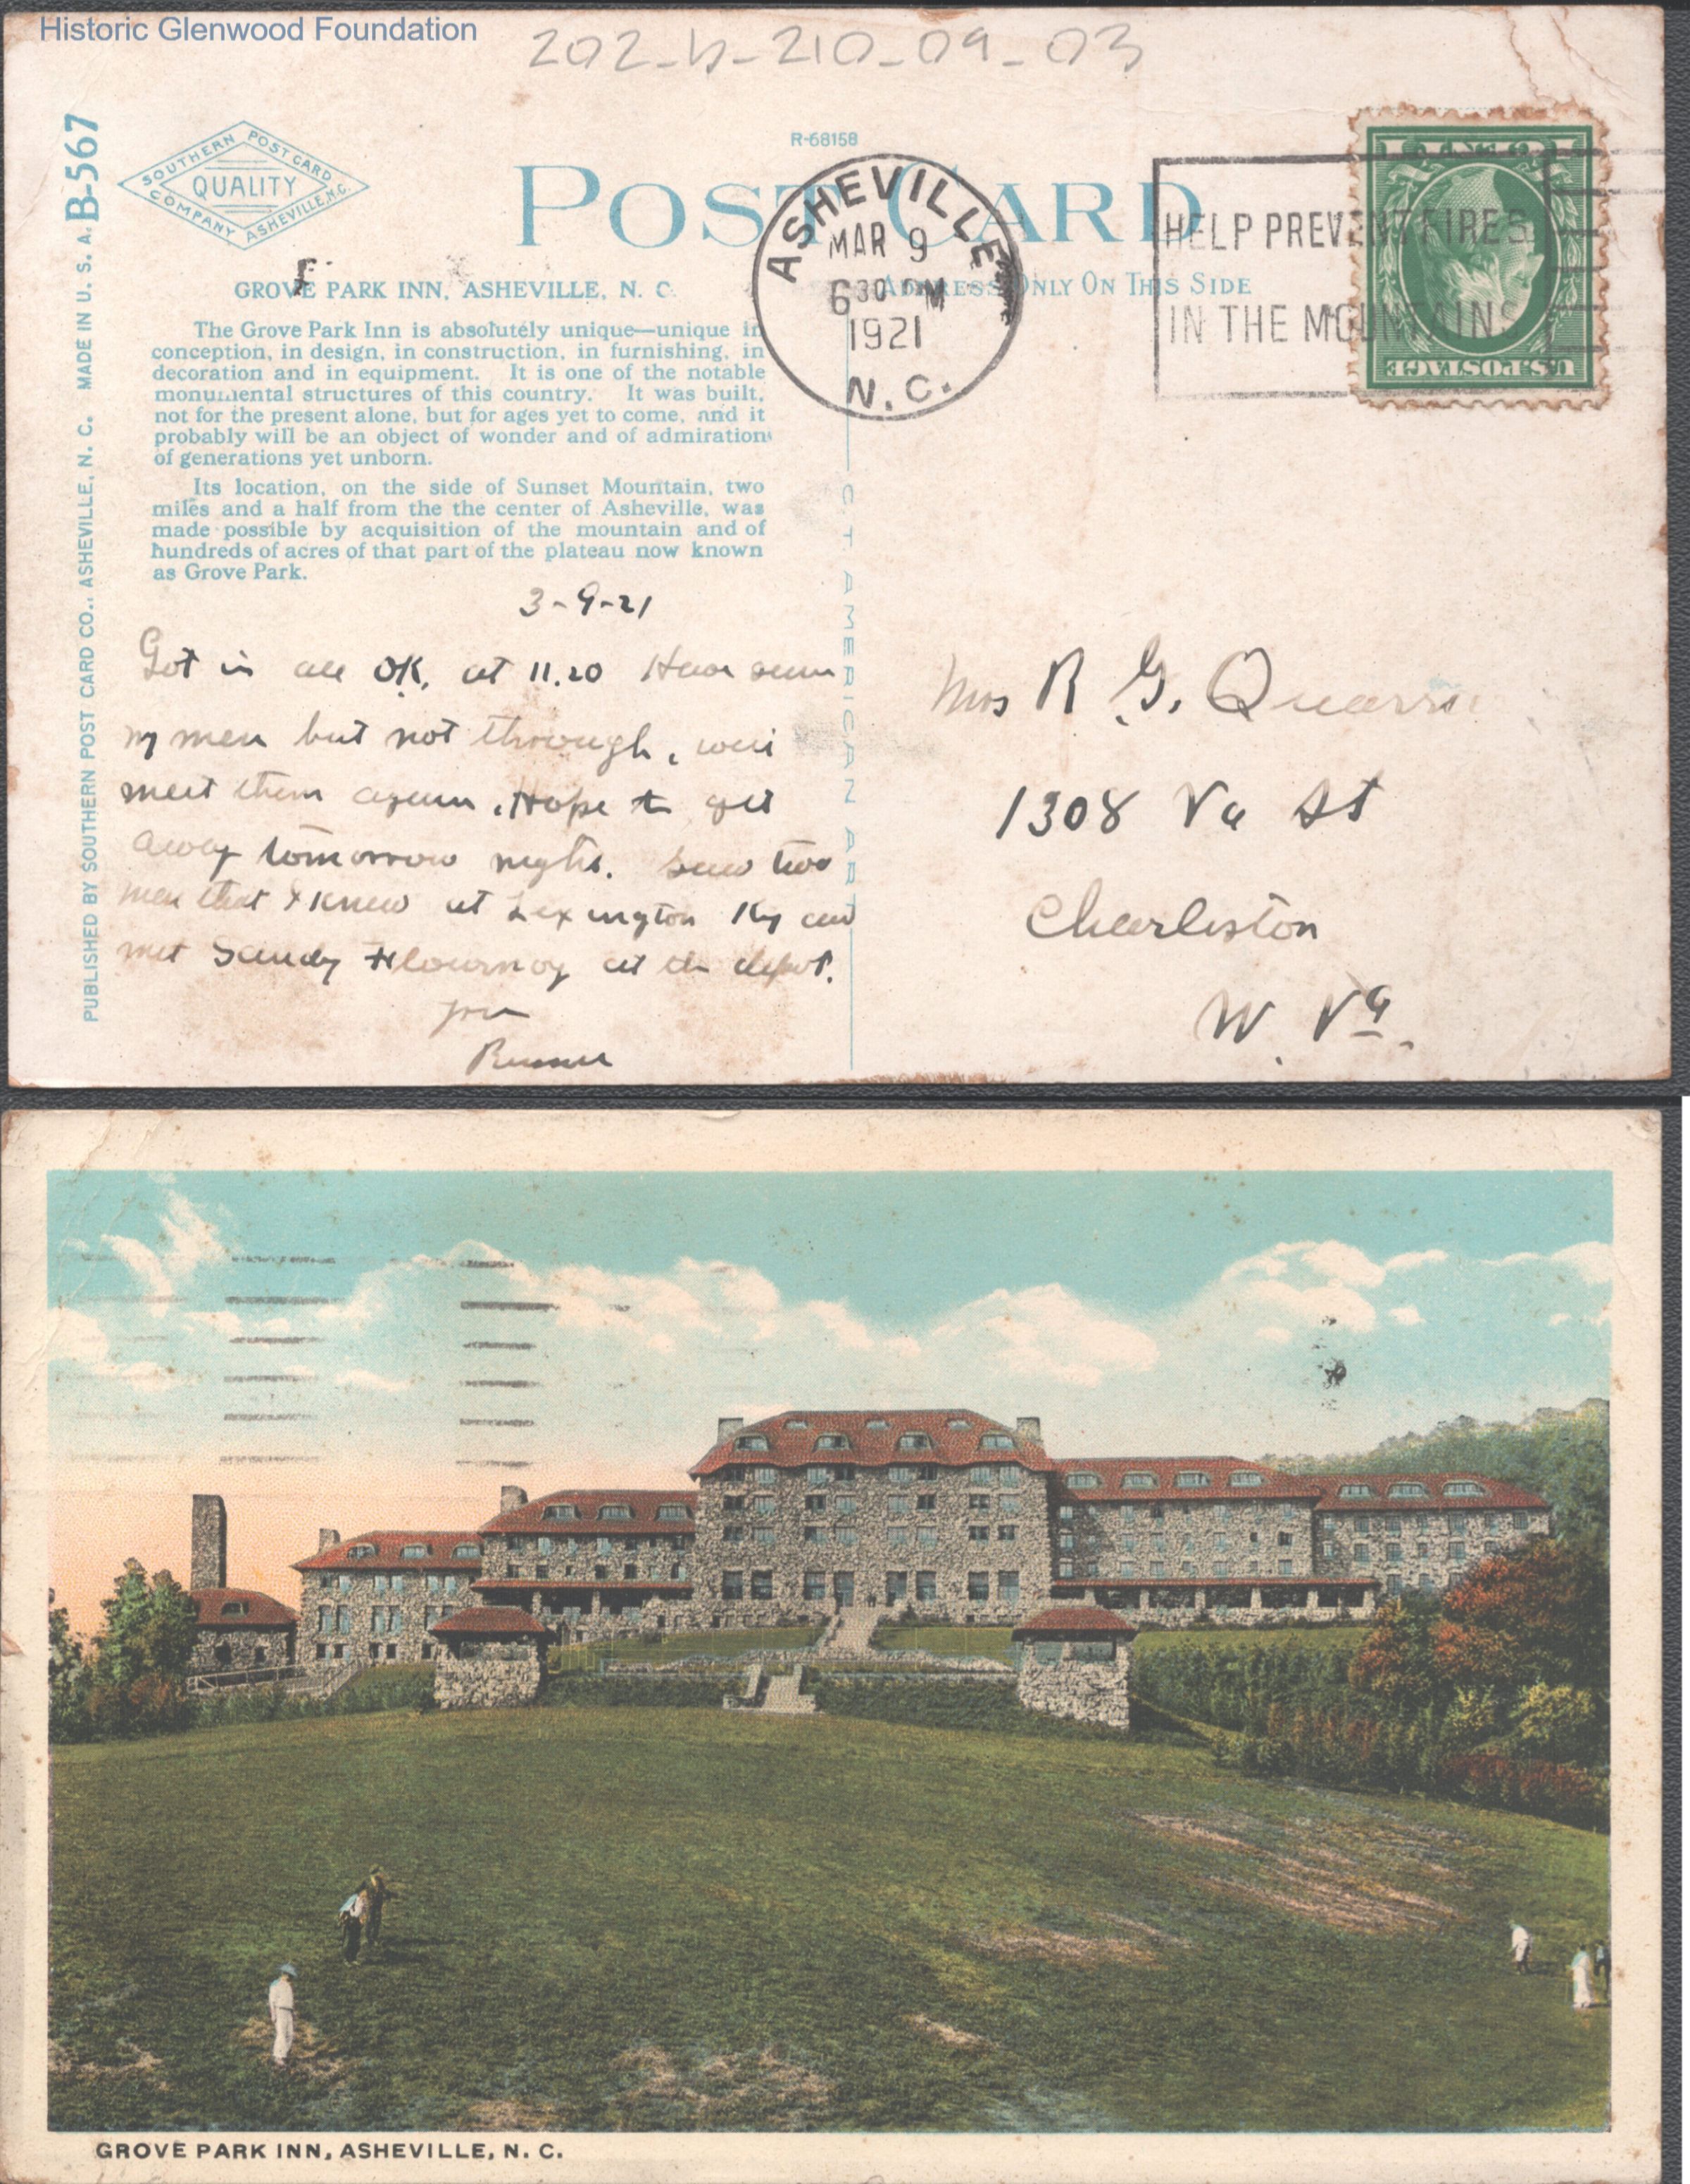 Historic Glenwood Foundation
202-b-210-09-03
PUBLISHED BY SOUTHERN POST CARD CO., ASHEVILLE, N. C. MADE IN U. S. A. B-567
SOUTHERN POST CARD
QUALITY
COMPANY ASHEVILLE, N.C.
R-68158
POST CARD
ADDRESS ONLY ON THIS SIDE
ASHEVILLE
MAR 9
6 30 PM
1921
N.C.
HELP PREVENT FIRES
IN THE MOUNTAINS
U.S. POSTAGE
GROVE PARK INN, ASHEVILLE, N. C.
The Grove Park Inn is absolutely unique—unique in
conception, in design, in construction, in furnishing, in
decoration and in equipment. It is one of the notable
monumental structures of this country. It was built,
not for the present alone, but for ages yet to come, and it
probably will be an object of wonder and of admiration
of generations yet unborn.
Its location, on the side of Sunset Mountain, two
miles and a half from the the center of Asheville, was
made possible by acquisition of the mountain and of
hundreds of acres of that part of the plateau now known
as Grove Park.
C T AMERICAN ART
3-9-21
Got in all OK. at 11.20 Have seen
my men but not through, will
meet them again. Hope to get
away tomorrow night. Saw two
men that I knew at Lexington Ky and
met Sandy Flournoy at the depot.
Mrs R. G. Quarrier
1308 Va St
Charleston
W. Va.
GROVE PARK INN, ASHEVILLE, N. C.